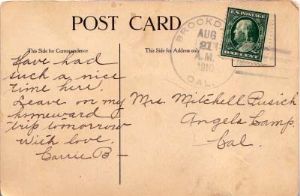 POST CARD
This Side for Correspondence
This Side for Address only
BROOKDALE
AUG
21
A.M.
1910
CAL.
U.S. POSTAGE
Have had
such a nice
time here.
Leave on my
homeward
trip tomorrow
with love.
Carrie B-
Mrs. Mitchell
Angels Camp
Cal.